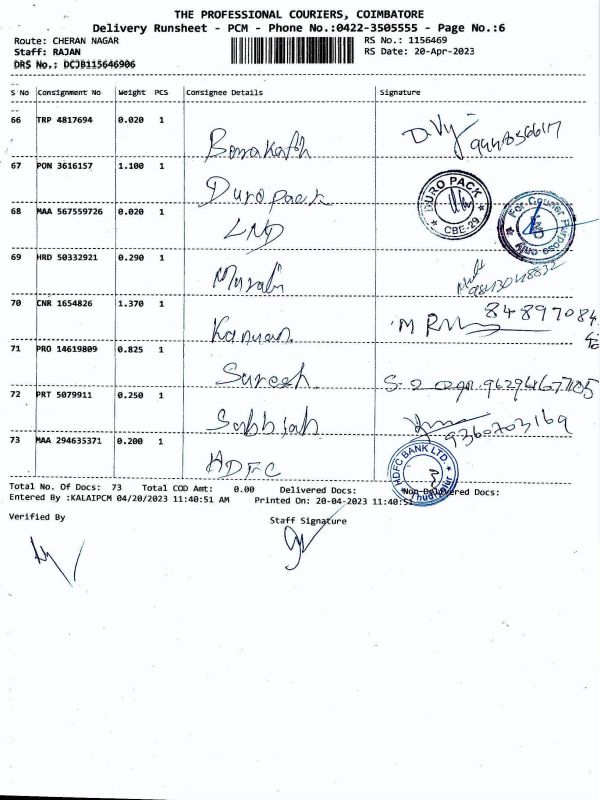 THE PROFESSIONAL COURIERS, COIMBATORE
Delivery Runsheet - PCM - Phone No.:0422-3505555 - Page No.:6
Route: CHERAN NAGAR RS No.: 1156469
Staff: RAJAN RS Date: 20-Apr-2023
DRS No.: DCJB115646906
S No Consignment No Weight PCS Consignee Details Signature
66 TRP 4817694 0.020 1
67 PON 3616157 1.100 1
Duropack DURO PACK CBE-29
68 MAA 567559726 0.020 1
LND For Courier Purpose only
69 HRD 50332921 0.290 1
Murali
70 CNR 1654826 1.370 1
Kannan
71 PRO 14619809 0.825 1
Suresh
72 PRT 5079911 0.250 1
Subbiah 9360703169
73 MAA 294635371 0.200 1
HDFC HDFC BANK LTD.
Total No. Of Docs: 73 Total COD Amt: 0.00 Delivered Docs: Non Delivered Docs:
Entered By :KALAIPCM 04/20/2023 11:40:51 AM Printed On: 20-04-2023 11:40:51
Verified By Staff Signature